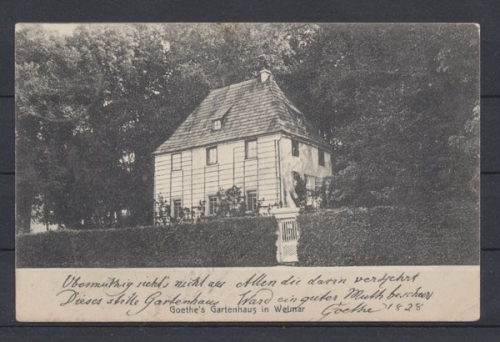 Übermüthig sieht's nicht aus Allen die darin verkehrt
Dieses stille Gartenhaus Ward ein guter Muth bescheert
Goethe 1828
Goethe's Gartenhaus in Weimar